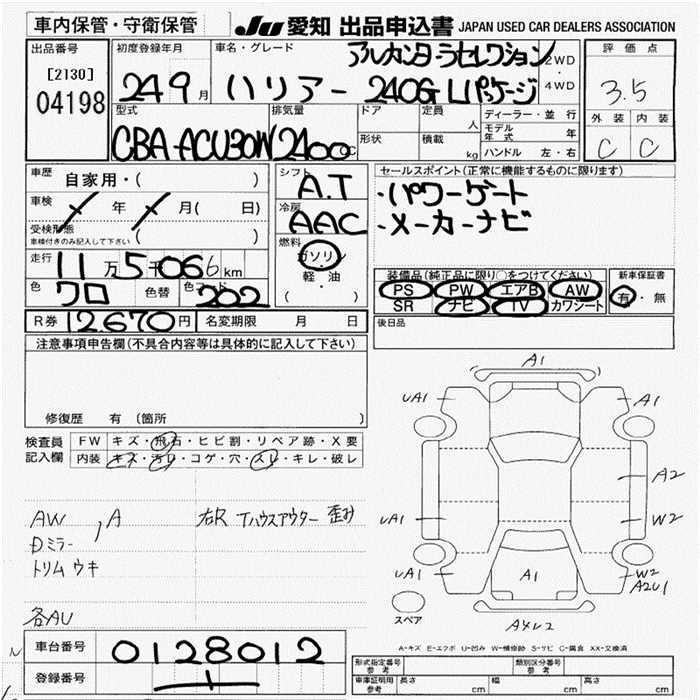 車内保管・守衛保管
JU 愛知 出品申込書 JAPAN USED CAR DEALERS ASSOCIATION
出品番号
[2130]
04198
初度登録年月
24 9月
車名・グレード
アルカンターラセレクション
ハリアー 240G Lパケージ
2WD
4WD
評価点
3.5
外装 内装
C C
型式
CBA ACU30W
排気量
2400cc
ドア
形状
定員
人
積載
kg
ディーラー・並行
モデル年式 年
ハンドル 左・右
車歴 自家用・( )
車検 年 月( 日)
受検形態
車検付きのみ記入して下さい ( )
走行 11万5千066km
色 クロ 色替 色コード 202
R券 12,670円 名変期限 月 日
シフト
A.T
冷房
AAC
燃料
ガソリン
軽・油
( )
セールスポイント(正常に機能するものに限ります)
・パワーゲート
・メーカーナビ
装備品(純正品に限り○をつけてください)
PS PW エアB AW
SR ナビ TV カワシート
新車保証書
有・無
後日品
注意事項申告欄(不具合内容等は具体的に記入して下さい)
修復歴 有 (箇所 )
検査員記入欄
FW キズ・飛石・ヒビ割・リペア跡・X要
内装 キズ・汚れ・コゲ・穴・スレ・キレ・破レ
AW , A
Dミラー
トリムウキ
各AU
右R Tハウスアウター 歪み
A1
UA1
A1
A2
UA1
W2
UA1
A1
W2
A2U1
スペア
Aメレ2
A-キズ E-エクボ U-凹み W-補修跡 S-サビ C-腐食 XX-交換済
車台番号 0128012
登録番号
型式指定番号 参考
類別区分番号 参考
車庫証明用 参考 長さ cm 幅 cm 高さ cm